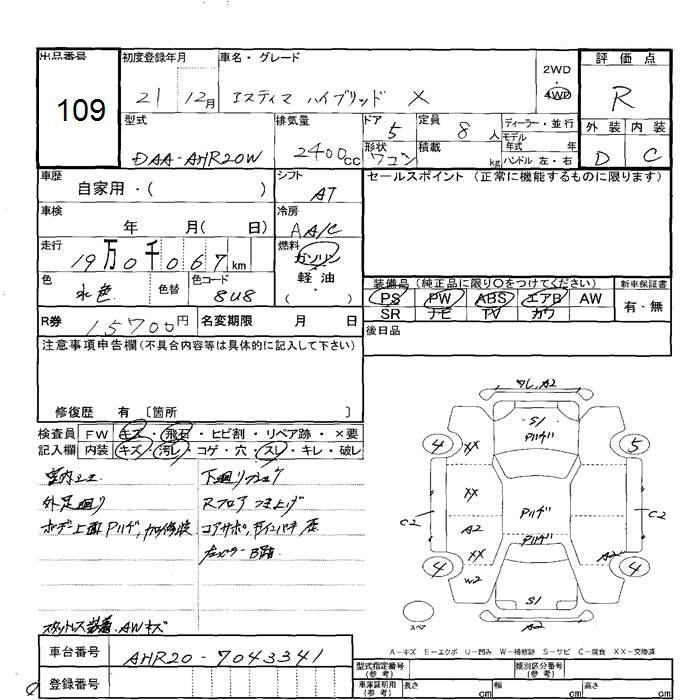 出品番号
109
初度登録年月
21 12月
車名・グレード
エスティマ ハイブリッド X
2WD
4WD
評価点
R
外装 内装
D C
型式
DAA-AHR20W
排気量
2400cc
ドア
5
形状
ワゴン
定員
8人
積載
kg
ディーラー・並行
モデル
年式 年
ハンドル 左・右
車歴
自家用・( )
シフト
AT
セールスポイント (正常に機能するものに限ります)
車検
年 月( 日)
冷房
AA/C
走行
19万0千067km
燃料
ガソリン
軽油
( )
色
水色
色替
色コード
8U8
装備品(純正品に限り○をつけてください)
新車保証書
PS PW ABS エアB AW
有・無
SR ナビ TV カワ
R券
15700円
名変期限 月 日
後日品
注意事項申告欄(不具合内容等は具体的に記入して下さい)
修復歴 有 〔箇所 〕
検査員
記入欄
FW キズ・飛石・ヒビ割・リペア跡・×要
内装 キズ・汚レ・コゲ・穴・スレ・キレ・破レ
外足廻り
Rフロア つき上げ
スタットレス装着、AWキズ
ワレ,A2
S1
Pハゲ
4
5
XX
XX
Pハゲ
C2
A2
C2
Pハゲ
XX
A2
4
4
W2
S1
A2
スペア
A-キズ E-エクボ U-凹み W-補修跡 S-サビ C-腐食 XX-交換済
車台番号
AHR20-7043341
登録番号
型式指定番号
(参考)
類別区分番号
(参考)
車庫証明用
(参考)
長さ cm 幅 cm 高さ cm